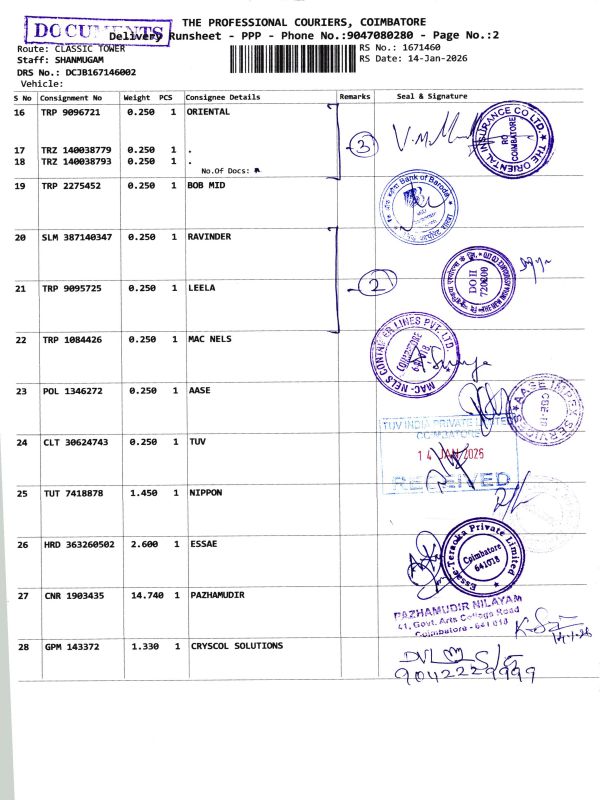 DOCUMENTS
THE PROFESSIONAL COURIERS, COIMBATORE
Delivery Runsheet - PPP - Phone No.:9047080280 - Page No.:2
Route: CLASSIC TOWER
RS No.: 1671460
Staff: SHANMUGAM
RS Date: 14-Jan-2026
DRS No.: DCJB167146002
Vehicle:
S No Consignment No Weight PCS Consignee Details Remarks Seal & Signature
16 TRP 9096721 0.250 1 ORIENTAL
THE ORIENTAL INSURANCE CO LTD. RO COIMBATORE
3
17 TRZ 140038779 0.250 1 .
18 TRZ 140038793 0.250 1 .
No.Of Docs:
19 TRP 2275452 0.250 1 BOB MID
Bank of Baroda
20 SLM 387140347 0.250 1 RAVINDER
21 TRP 9095725 0.250 1 LEELA
2
DO II 720200
22 TRP 1084426 0.250 1 MAC NELS
MAC-NELS CONTAINER LINES PVT. LTD. COIMBATORE 641 018
23 POL 1346272 0.250 1 AASE
AASE IMPEX SERVICES CBE-18
24 CLT 30624743 0.250 1 TUV
TUV INDIA PRIVATE LIMITED
COIMBATORE
14 JAN 2026
RECEIVED
25 TUT 7418878 1.450 1 NIPPON
26 HRD 363260502 2.600 1 ESSAE
Essae-Teraoka Private Limited Coimbatore 641018
27 CNR 1903435 14.740 1 PAZHAMUDIR
PAZHAMUDIR NILAYAM
41, Govt. Arts College Road
Coimbatore - 641 018
28 GPM 143372 1.330 1 CRYSCOL SOLUTIONS
9042229999